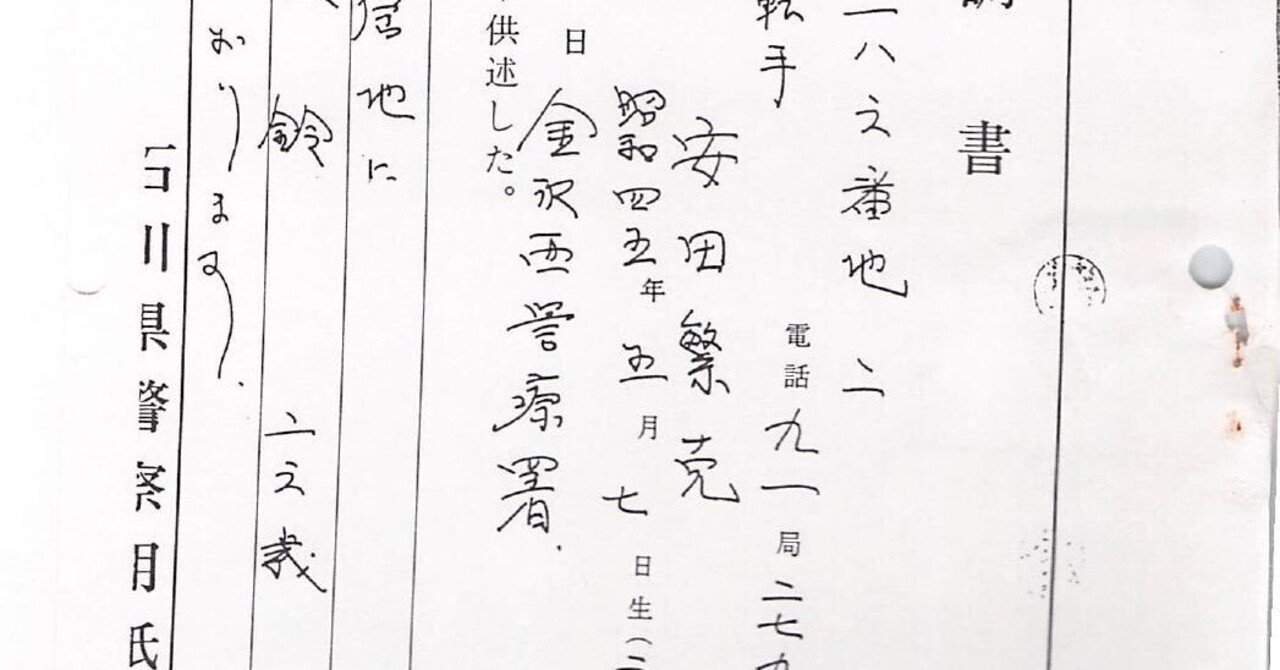 書
一八之番地二
転手
電話九一局二七九
安田繁克
昭和四五年五月七日生(二
日金沢西警察署.
供述した。
居地に
鈴二之歳
おります.
石川県警察